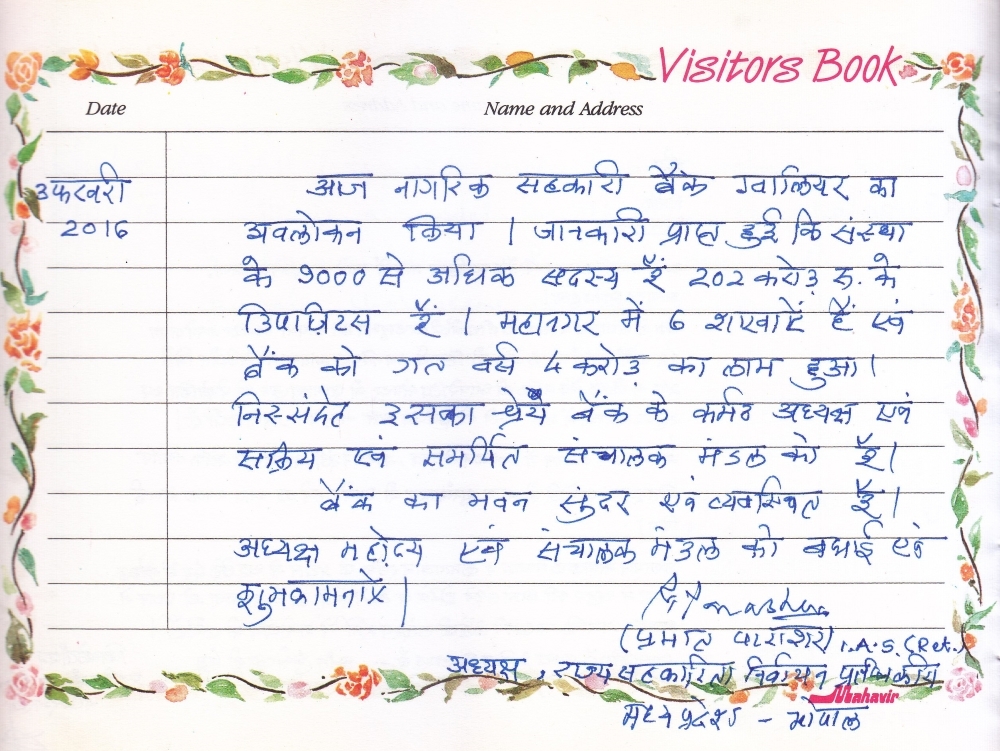 Visitors Book
Date Name and Address
3 फरवरी आज नागरिक सहकारी बैंक ग्वालियर का
2016 अवलोकन किया । जानकारी प्राप्त हुई कि संस्था
के 9000 से अधिक सदस्य हैं 202 करोड़ रु. के
डिपाज़िटस हैं । महानगर में 6 शाखाऐं हैं एवं
बैंक को गत वर्ष 4 करोड़ का लाभ हुआ।
निस्संदेह इसका श्रेय बैंक के कर्मठ अध्यक्ष एवं
सक्रिय एवं समर्पित संचालक मंडल को है।
बैंक का भवन सुंदर एवं व्यवस्थित है।
अध्यक्ष महोदय एवं संचालक मंडल को बधाई एवं
शुभकामनायें|
(प्रभात पाराशर) I.A.S. (Ret.)
अध्यक्ष, राज्य सहकारिता निर्वाचन प्राधिकारी
Mahavir
मध्यप्रदेश - भोपाल